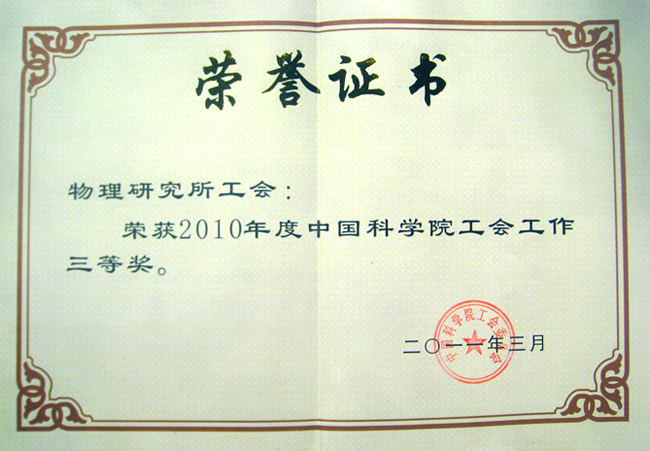 荣誉证书
物理研究所工会：
荣获2010年度中国科学院工会工作
三等奖。
中国科学院工会委员会
二〇一一年三月